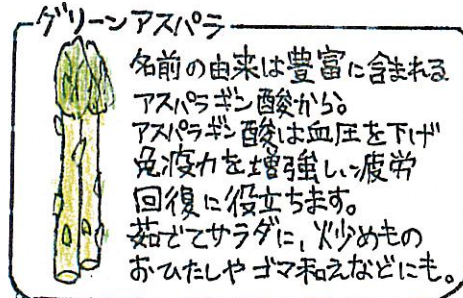 グリーンアスパラ
名前の由来は豊富に含まれる
アスパラギン酸から。
アスパラギン酸は血圧を下げ
免疫力を増強し、疲労
回復に役立ちます。
茹でてサラダに、炒めもの
おひたしやゴマ和えなどにも。